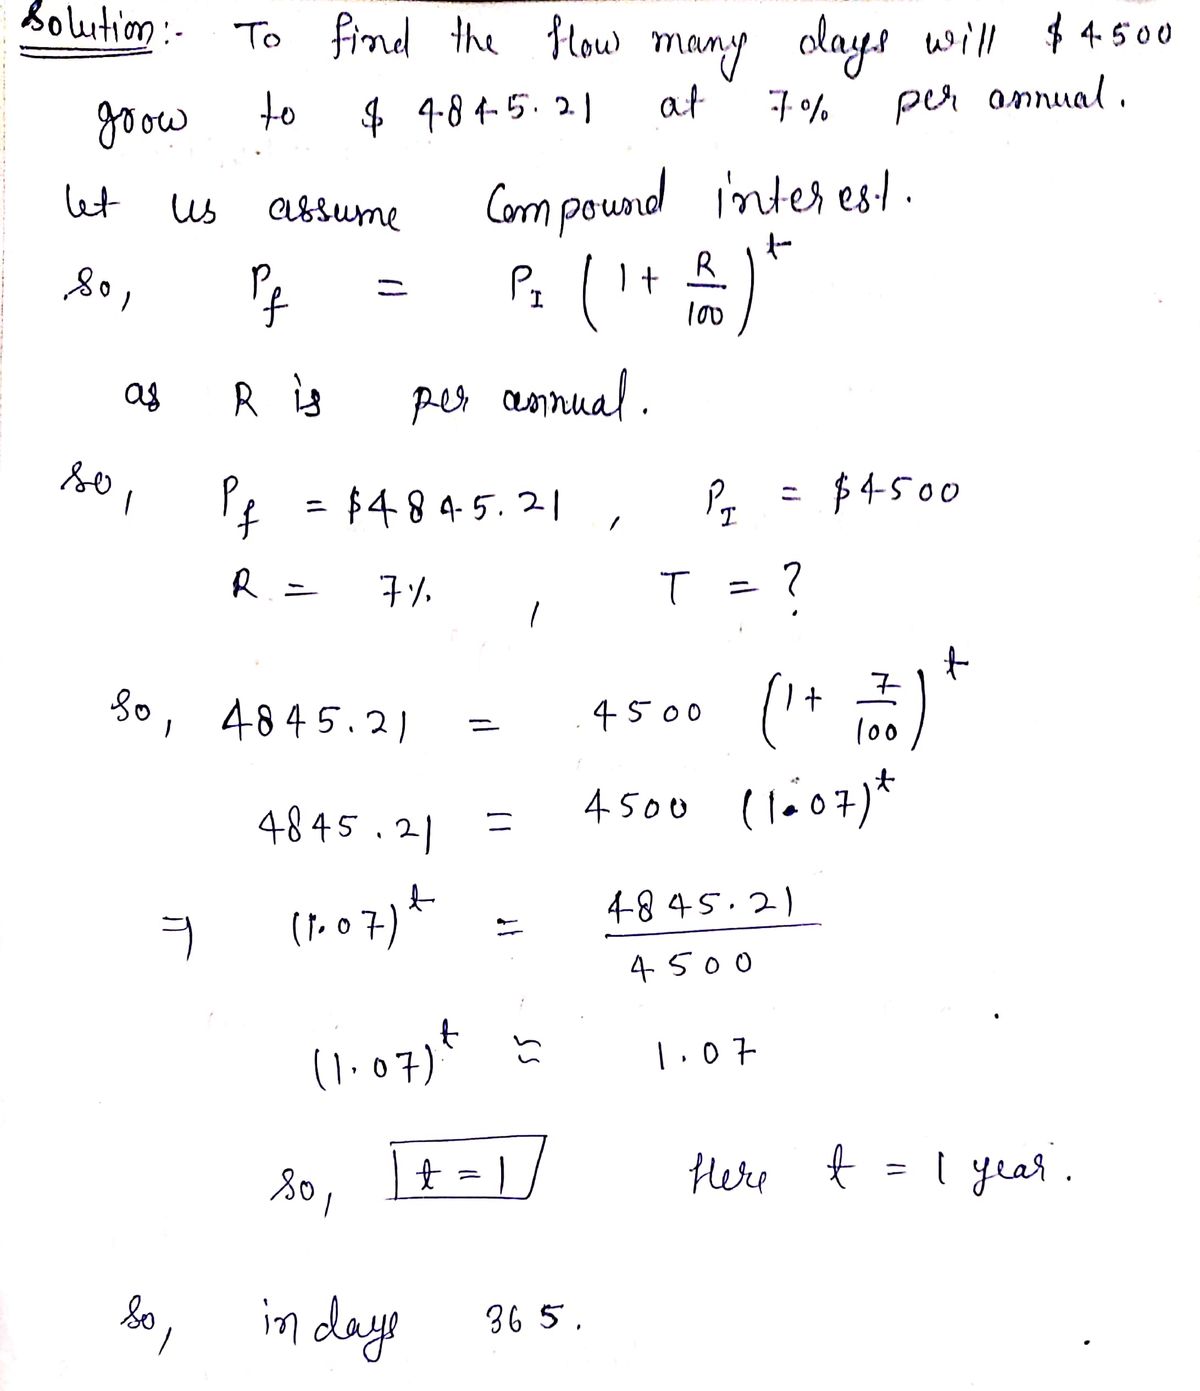 Solution:- To find the How many days will $4500
grow to $ 4845.21 at 7% per annual.
let us assume Compound interest.
So, P_f = P_I (1 + R/100)^t
as R is per annual.
So, P_f = $4845.21, P_I = $4500
R = 7%, T = ?
So, 4845.21 = 4500 (1 + 7/100)^t
4845.21 = 4500 (1.07)^t
⇒ (1.07)^t = 4845.21/4500
(1.07)^t ≃ 1.07
So, t = 1 Here t = 1 year.
So, in days 365.